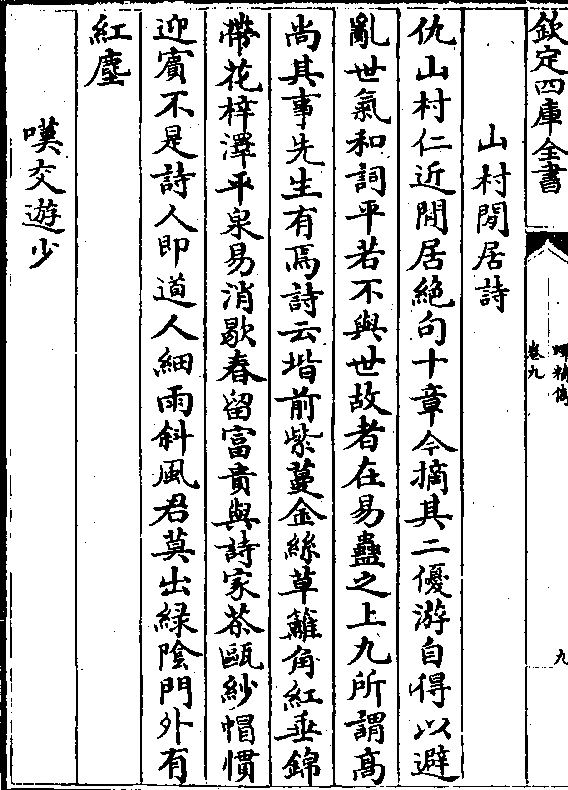 欽定四庫全書
卷九
九
山村閒居詩
仇山村仁近閒居絶句十章今摘其二優游自得以避
亂世氣和詞平若不與世故者在易蠱之上九所謂高
尚其事先生有焉詩云堦前紫蔓金絲草籬角紅垂錦
帶花梓澤平泉易消歇春留富貴與詩家茶甌紗帽慣
迎賓不是詩人即道人細雨斜風君莫出緑陰門外有
紅塵
嘆交遊少